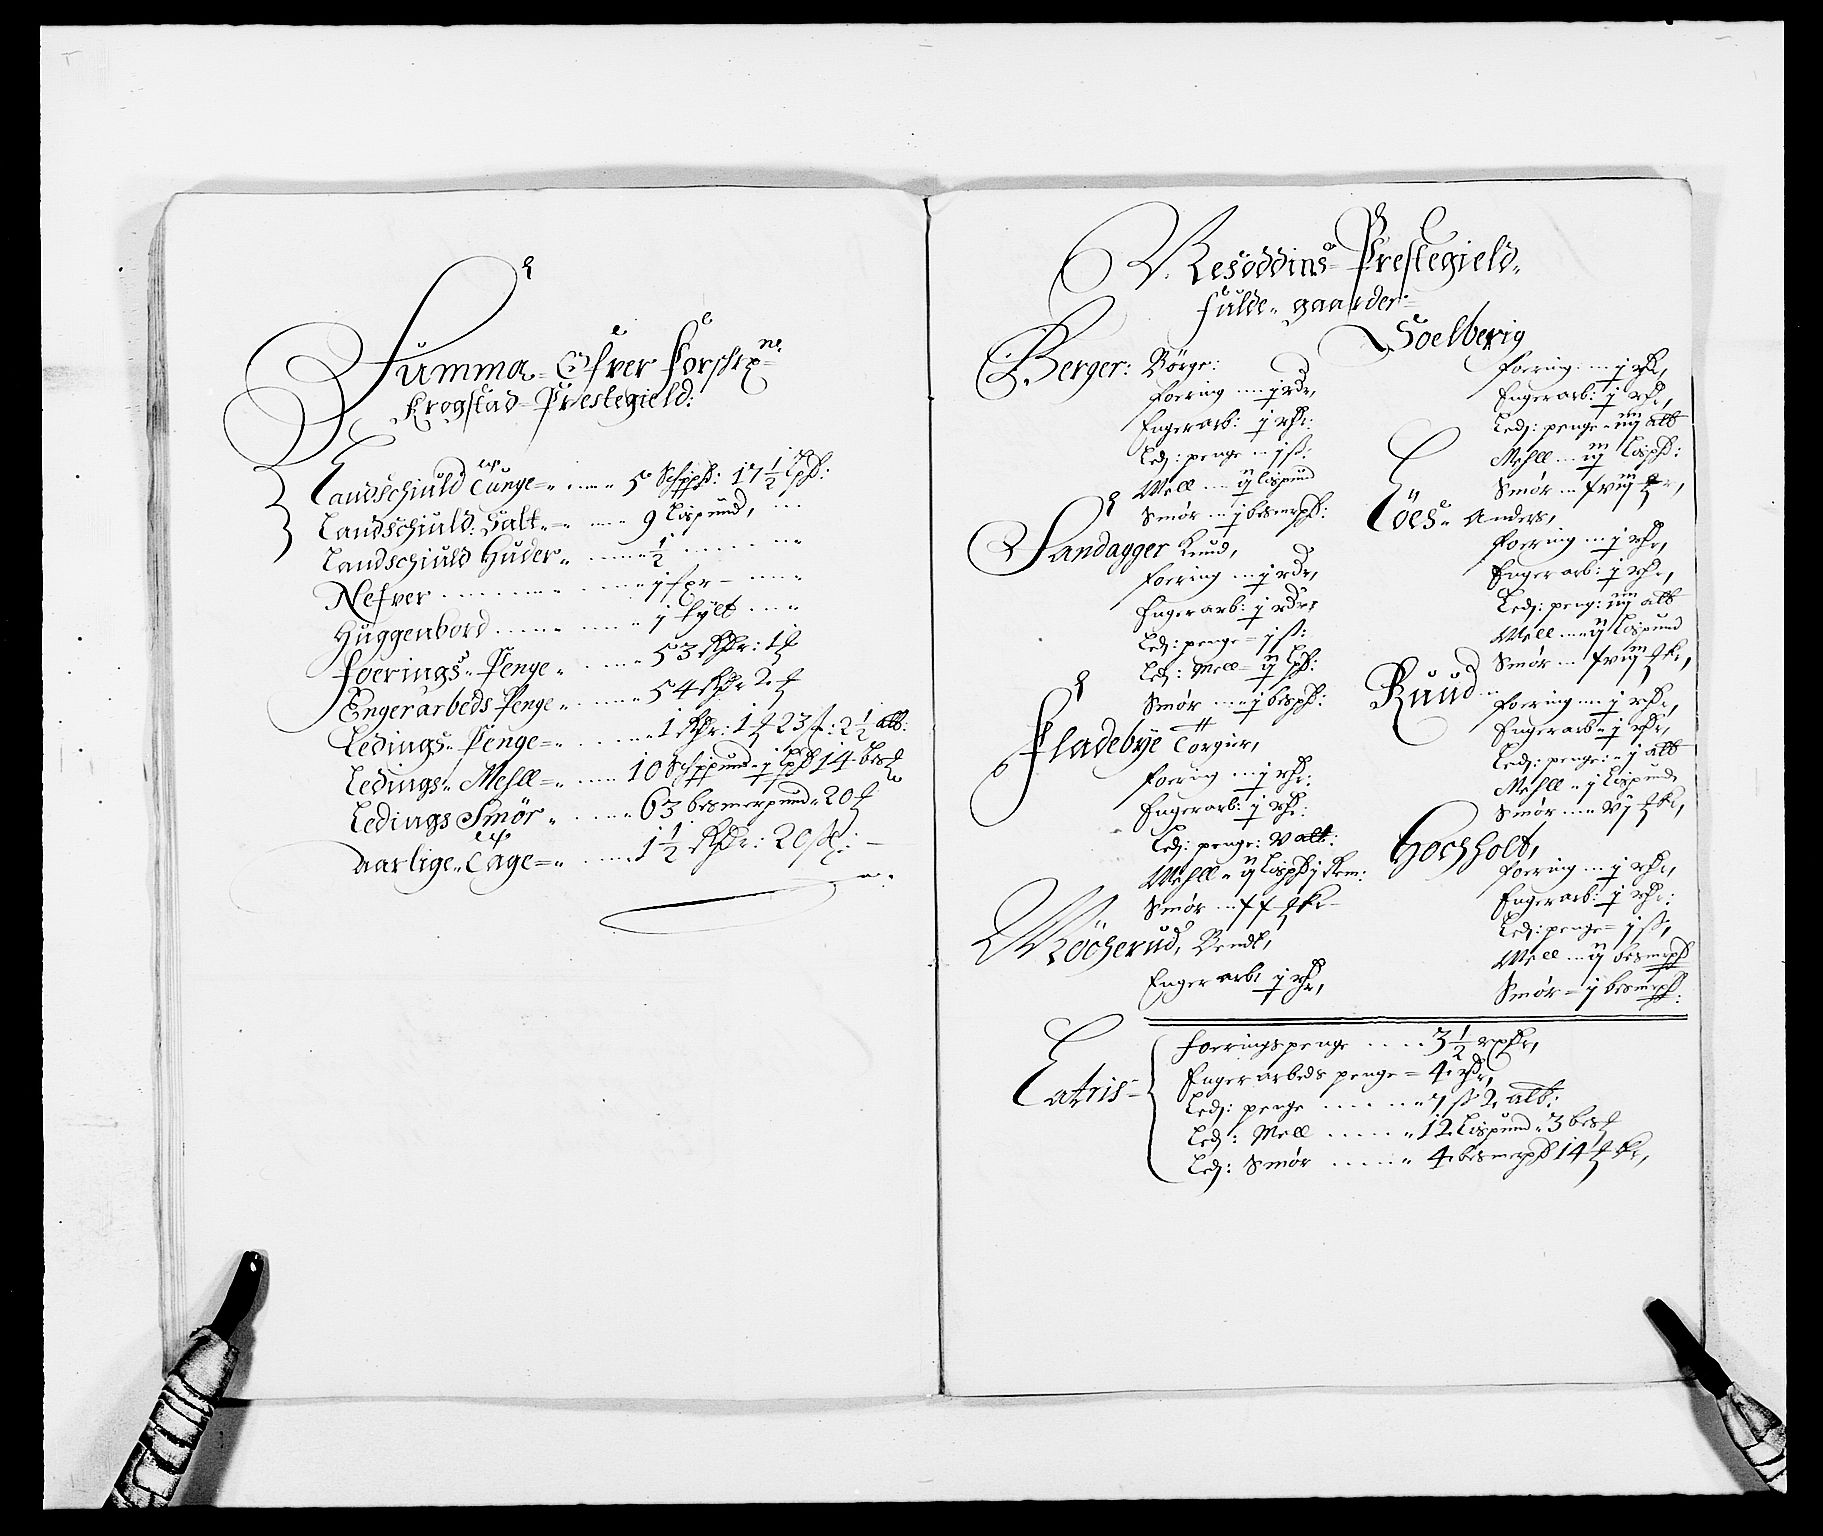 Summa Ofver Forschr.ne
Krogstad Prestegield:
Landschiuld Tunge 5 Schp℔: 17½ Lp℔:
Landschiuld: Salt 9 Lispund,
Landschiuld Huder ½
Nefver j
Huggenbord j tylt
Foerings Penge 53 Rdr: 1
Engerarbeds Penge 54 Rdr 2
Ledings Penge 1 Rdr: 1 23 ß: 2½ alb:
Ledings Mehll 10 Schippund j Lp℔ 14
Ledings Smør 63 besmerpund 20
Aarlige Tage 1½ Rdr: 20 ß:
Nesoddins Prestegield
fulde gaarder
Berger: Børge:
foering j rdr,
Engerarb: j rdr:
Led: penge j ß:
Mell ij lispund
Smør j besmerp℔:
Sandagger Knud,
foering j rdr,
Engerarb: j rdr,
Led: penge j ß:
Led: Mell ij Lp℔:
Smør j besp℔:
Fladebye Torgier,
foering j rdr:
Engerarb: j rdr:
Led: penge: v alb:
Mehll ij Lisp℔
Smør
Bendt,
Engerarb: j rdr,
Soelberig
foering j rdr,
Engerarb: j rdr,
Led: penge iiij alb
Mehll iij Lisp℔:
Smør
Töes Anders,
foering j rdr,
Engerarb: j rdr,
Led: peng: iiij alb
Mell ij Lispund
Smør
Ruud
foering j rdr,
Engerarb: j rdr,
Led: penge: j alb
Mehll j Lispund
Smør
Hochholt,
foering j rdr,
Engerarb: j rdr:
Led: penge j ß,
Mell ij besmerp℔
Smør j besmerp℔:
Latris
foeringspenge 3½ rdr,
Engerarbeds penge 4 rdr,
Led: penge 7 ß 2 alb:
Led: Mell 12 Lispund 3
Led: Smør 4 besmerp℔ 14